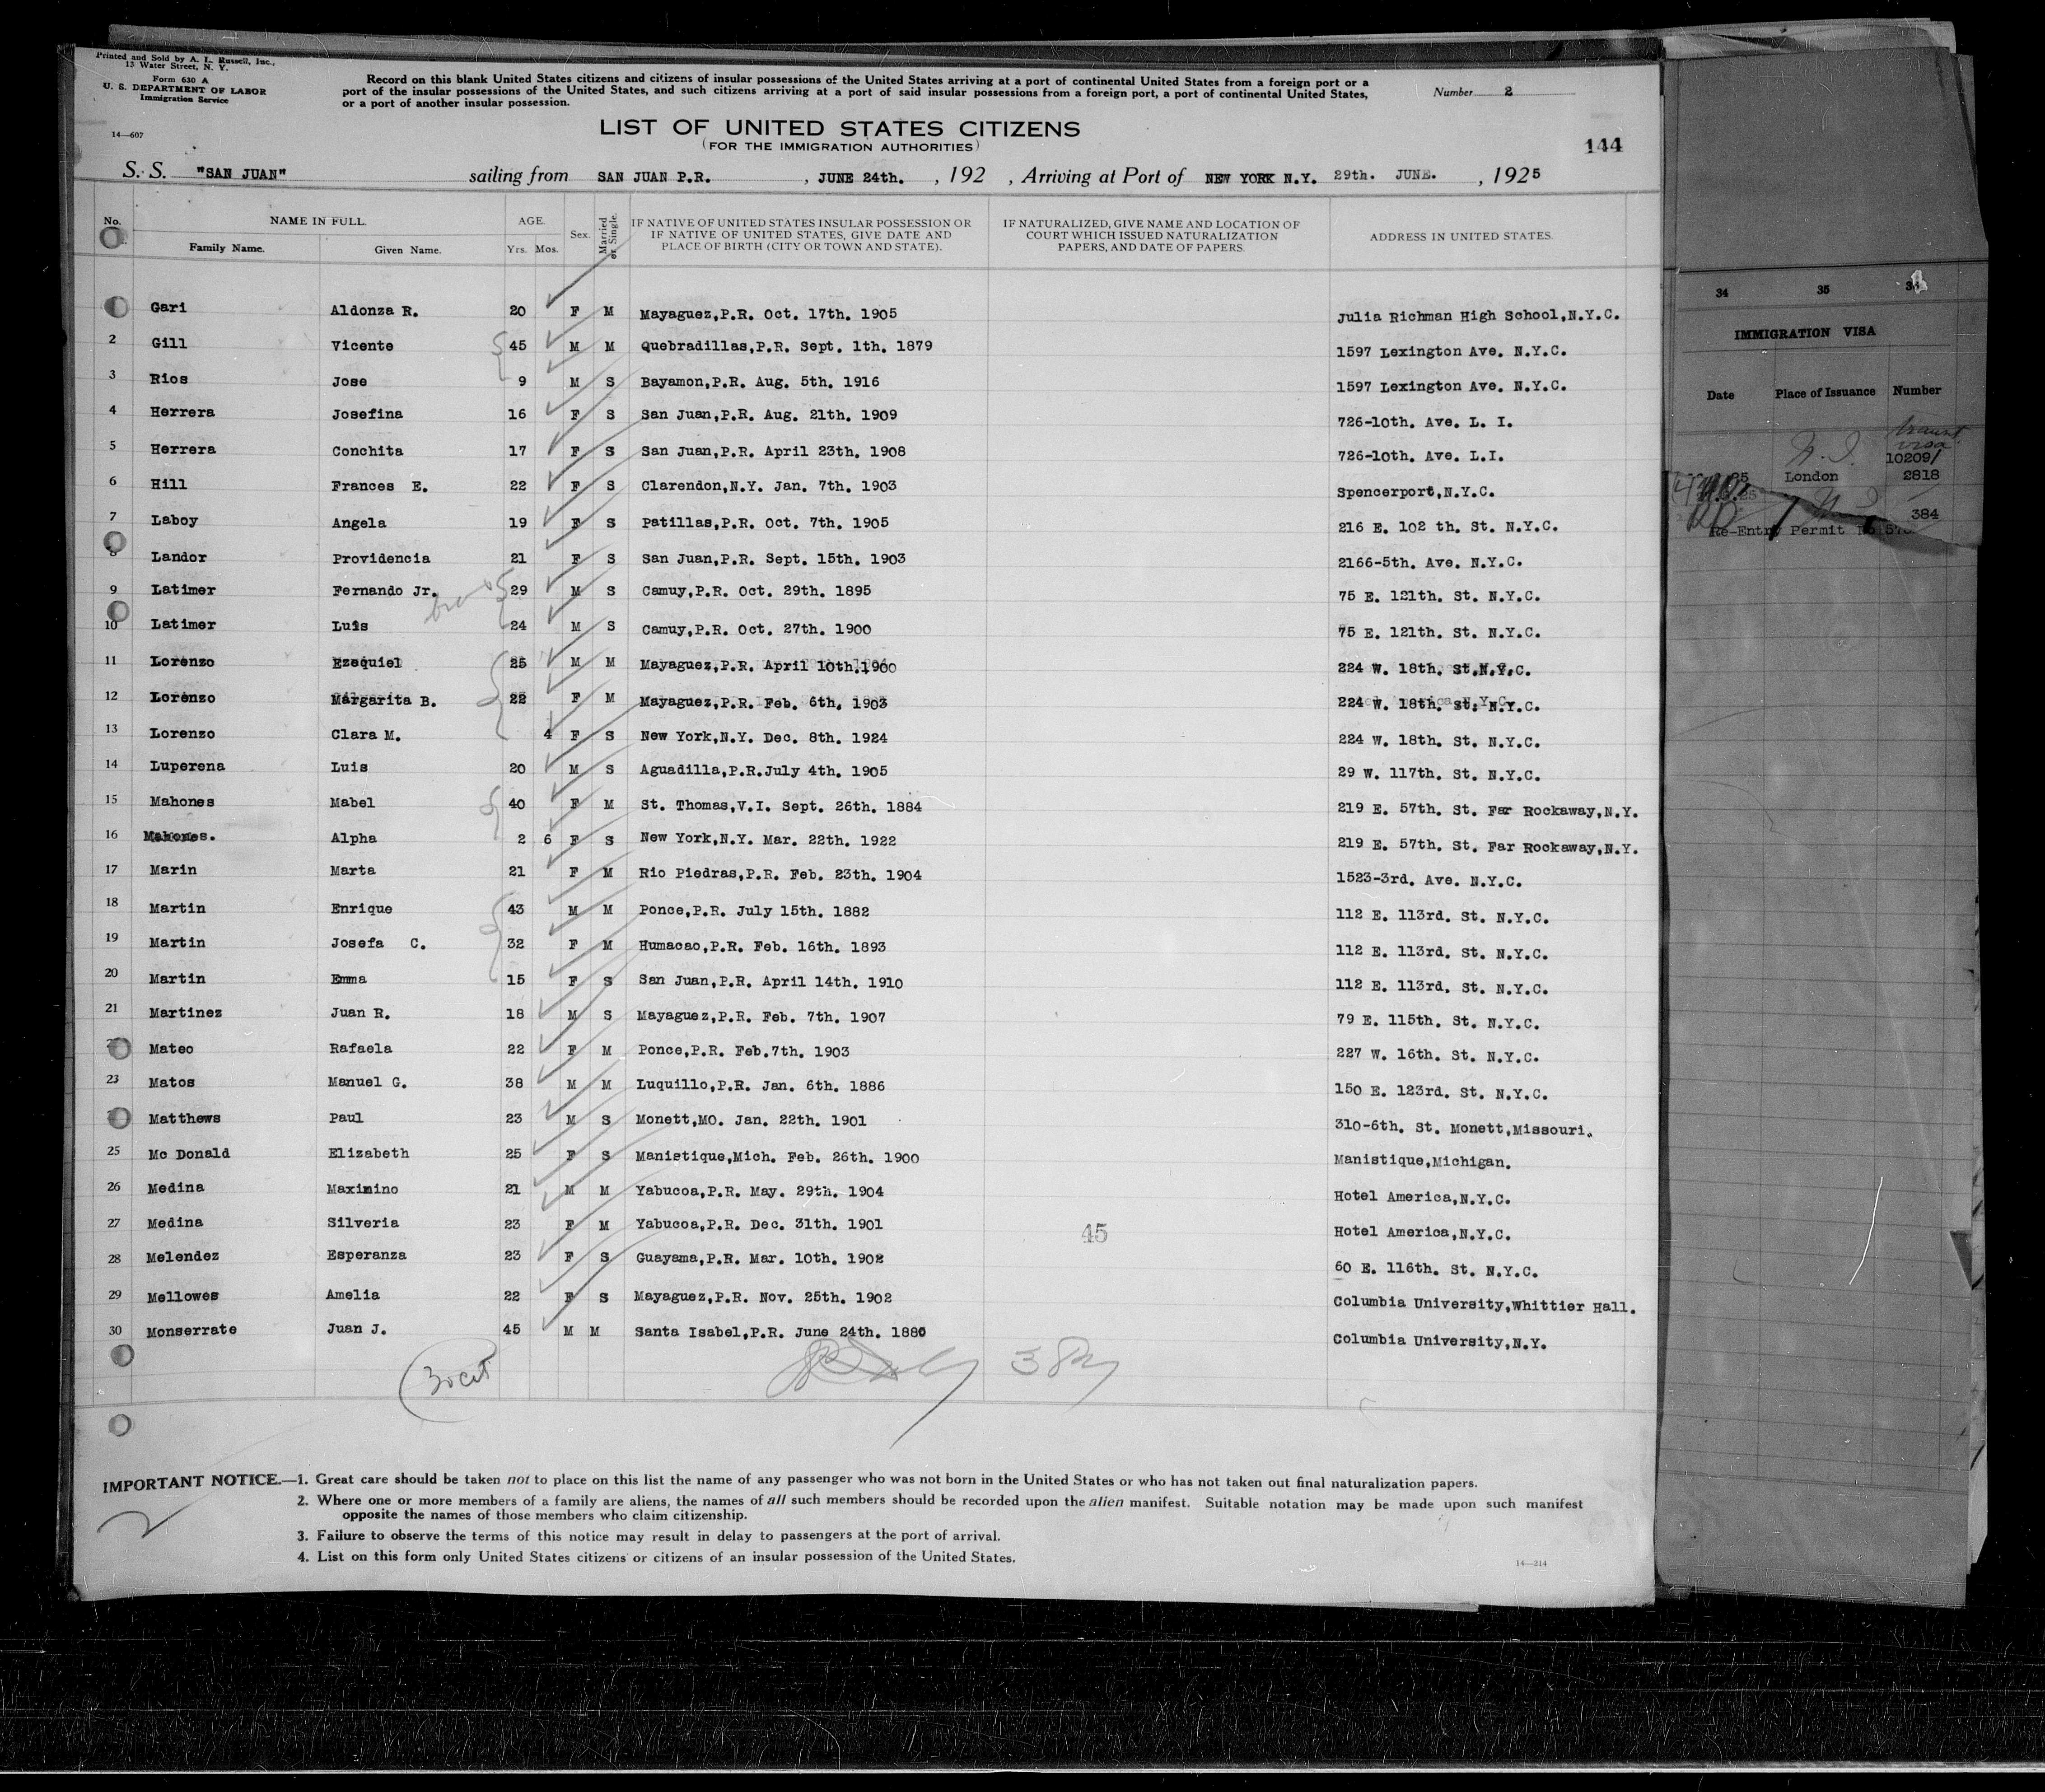 Printed and Sold by A. L. Russell, Inc.,
13 Water Street, N. Y.
Form 630 A
U. S. DEPARTMENT OF LABOR
Immigration Service
14—607
Record on this blank United States citizens and citizens of insular possessions of the United States arriving at a port of continental United States from a foreign port or a
port of the insular possessions of the United States, and such citizens arriving at a port of said insular possessions from a foreign port, a port of continental United States,
or a port of another insular possession.
Number 2
LIST OF UNITED STATES CITIZENS
(FOR THE IMMIGRATION AUTHORITIES)
144
S. S. "SAN JUAN" sailing from SAN JUAN P.R. , JUNE 24th. , 192 , Arriving at Port of NEW YORK N.Y. 29th. JUNE. , 1925
No. NAME IN FULL. AGE. Sex. Married or Single. IF NATIVE OF UNITED STATES INSULAR POSSESSION OR IF NATIVE OF UNITED STATES, GIVE DATE AND PLACE OF BIRTH (CITY OR TOWN AND STATE). IF NATURALIZED, GIVE NAME AND LOCATION OF COURT WHICH ISSUED NATURALIZATION PAPERS, AND DATE OF PAPERS. ADDRESS IN UNITED STATES.
Family Name. Given Name. Yrs. Mos.
Gari Aldonza R. 20 F M Mayaguez,P.R. Oct. 17th. 1905 Julia Richman High School,N.Y.C.
2 Gill Vicente 45 M M Quebradillas,P.R. Sept. 1th. 1879 1597 Lexington Ave. N.Y.C.
3 Rios Jose 9 M S Bayamon,P.R. Aug. 5th. 1916 1597 Lexington Ave. N.Y.C.
4 Herrera Josefina 16 F S San Juan,P.R. Aug. 21th. 1909 726-10th. Ave. L. I.
5 Herrera Conchita 17 F S San Juan,P.R. April 23th. 1908 726-10th. Ave. L.I.
6 Hill Frances E. 22 F S Clarendon,N.Y. Jan. 7th. 1903 Spencerport,N.Y.C.
7 Laboy Angela 19 F S Patillas,P.R. Oct. 7th. 1905 216 E. 102 th. St. N.Y.C.
8 Landor Providencia 21 F S San Juan,P.R. Sept. 15th. 1903 2166-5th. Ave. N.Y.C.
9 Latimer Fernando Jr. bros 29 M S Camuy,P.R. Oct. 29th. 1895 75 E. 121th. St. N.Y.C.
10 Latimer Luis 24 M S Camuy,P.R. Oct. 27th. 1900 75 E. 121th. St. N.Y.C.
11 Lorenzo Ezequiel 25 M M Mayaguez,P.R. April 10th.1900 224 W. 18th. St.N.Y.C.
12 Lorenzo Margarita B. 22 F M Mayaguez,P.R. Feb. 6th. 1903 224 W. 18th. St. N.Y.C.
13 Lorenzo Clara M. 4 F S New York,N.Y. Dec. 8th. 1924 224 W. 18th. St. N.Y.C.
14 Luperena Luis 20 M S Aguadilla,P.R.July 4th. 1905 29 W. 117th. St. N.Y.C.
15 Mahones Mabel 40 F M St. Thomas,V.I. Sept. 26th. 1884 219 E. 57th. St. Far Rockaway,N.Y.
16 Mahones. Alpha 2 6 F S New York,N.Y. Mar. 22th. 1922 219 E. 57th. St. Far Rockaway,N.Y.
17 Marin Marta 21 F M Rio Piedras,P.R. Feb. 23th. 1904 1523-3rd. Ave. N.Y.C.
18 Martin Enrique 43 M M Ponce,P.R. July 15th. 1882 112 E. 113rd. St. N.Y.C.
19 Martin Josefa C. 32 F M Humacao,P.R. Feb. 16th. 1893 112 E. 113rd. St. N.Y.C.
20 Martin Emma 15 F S San Juan,P.R. April 14th. 1910 112 E. 113rd. St. N.Y.C.
21 Martinez Juan R. 18 M S Mayaguez,P.R. Feb. 7th. 1907 79 E. 115th. St. N.Y.C.
Mateo Rafaela 22 F M Ponce,P.R. Feb.7th. 1903 227 W. 16th. St. N.Y.C.
23 Matos Manuel G. 38 M M Luquillo,P.R. Jan. 6th. 1886 150 E. 123rd. St. N.Y.C.
Matthews Paul 23 M S Monett,MO. Jan. 22th. 1901 310-6th. St. Monett,Missouri.
25 Mc Donald Elizabeth 25 F S Manistique,Mich. Feb. 26th. 1900 Manistique,Michigan.
26 Medina Maximino 21 M M Yabucoa,P.R. May. 29th. 1904 Hotel America,N.Y.C.
27 Medina Silveria 23 F M Yabucoa,P.R. Dec. 31th. 1901 45 Hotel America,N.Y.C.
28 Melendez Esperanza 23 F S Guayama,P.R. Mar. 10th. 1902 60 E. 116th. St. N.Y.C.
29 Mellowes Amelia 22 F S Mayaguez,P.R. Nov. 25th. 1902 Columbia University,Whittier Hall.
30 Monserrate Juan J. 45 M M Santa Isabel,P.R. June 24th. 1880 Columbia University,N.Y.
30 cit
IMPORTANT NOTICE.—1. Great care should be taken not to place on this list the name of any passenger who was not born in the United States or who has not taken out final naturalization papers.
2. Where one or more members of a family are aliens, the names of all such members should be recorded upon the alien manifest. Suitable notation may be made upon such manifest
opposite the names of those members who claim citizenship.
3. Failure to observe the terms of this notice may result in delay to passengers at the port of arrival.
4. List on this form only United States citizens or citizens of an insular possession of the United States.
14—214
34 35
IMMIGRATION VISA
Date Place of Issuance Number
transit
visa
10209/
London 2818
384
Re-Entry Permit No